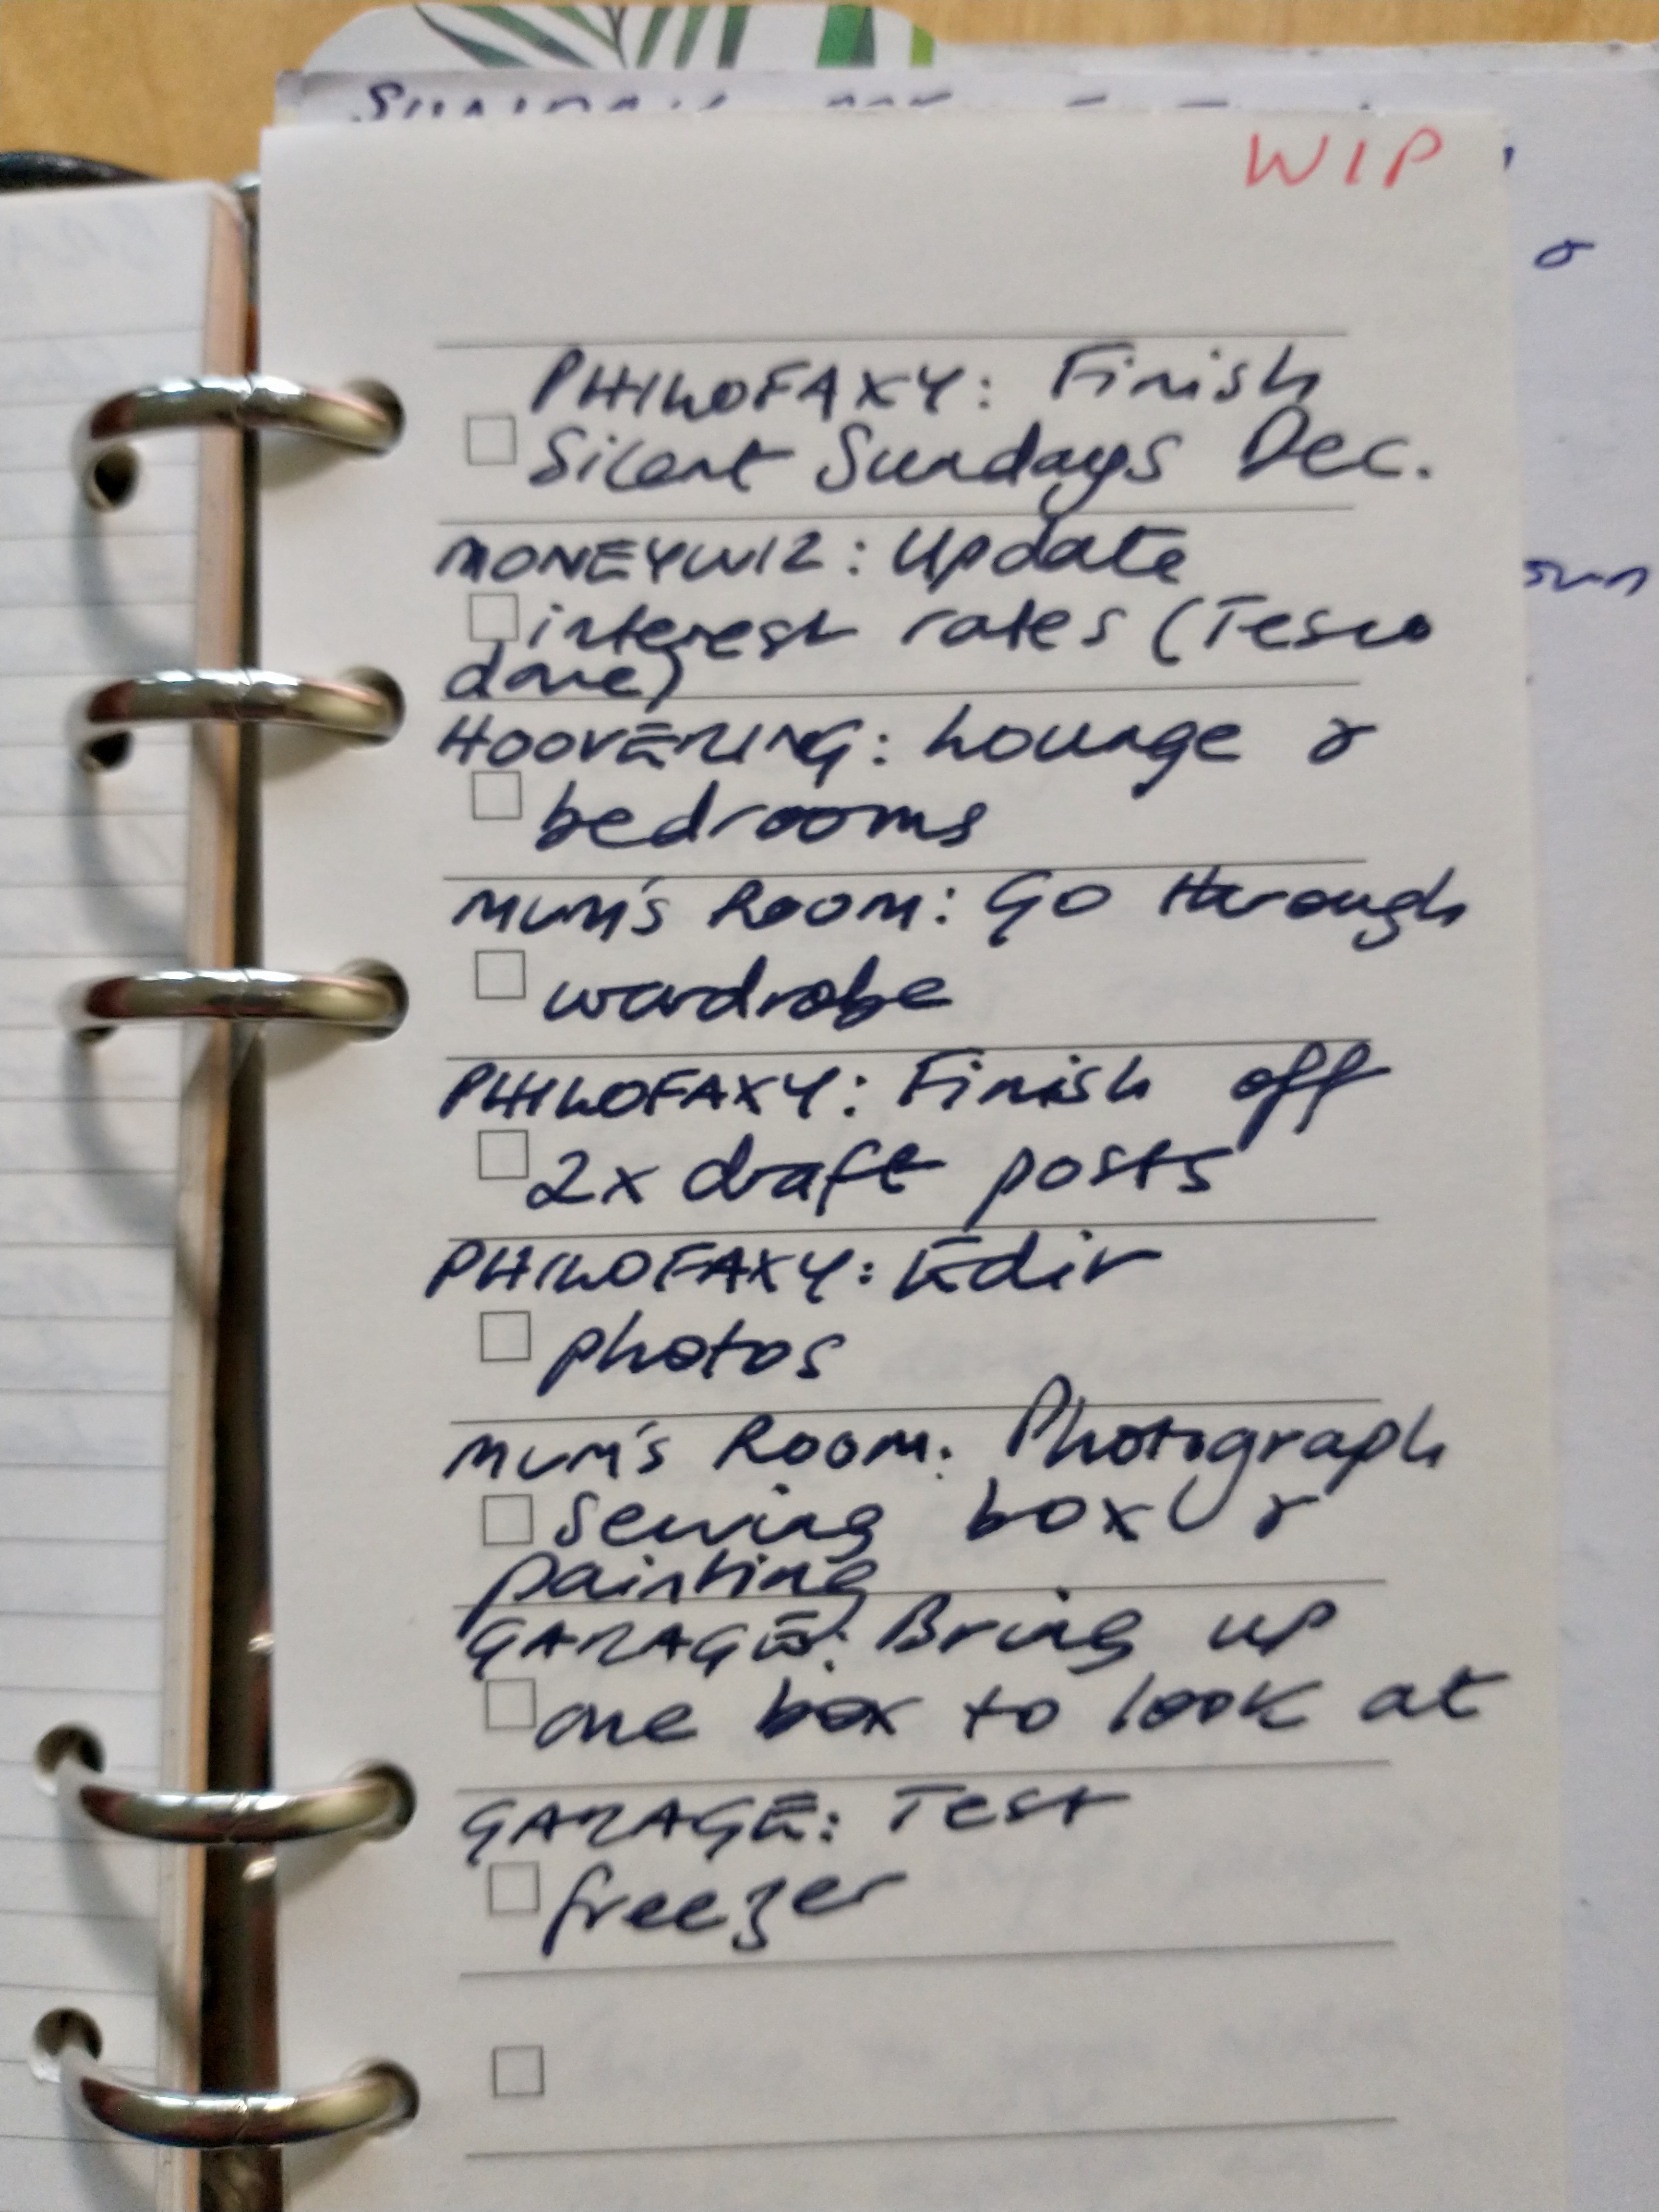 WIP
PHILOFAXY: Finish
Silent Sundays Dec.
MONEYWIZ: Update
interest rates (Tesco
done)
HOOVERING: Lounge &
bedrooms
MUM'S ROOM: Go through
wardrobe
PHILOFAXY: Finish off
2x draft posts
PHILOFAXY: Edit
photos
MUM'S ROOM: Photograph
sewing box &
painting
GARAGE: Bring up
one box to look at
GARAGE: Test
freezer